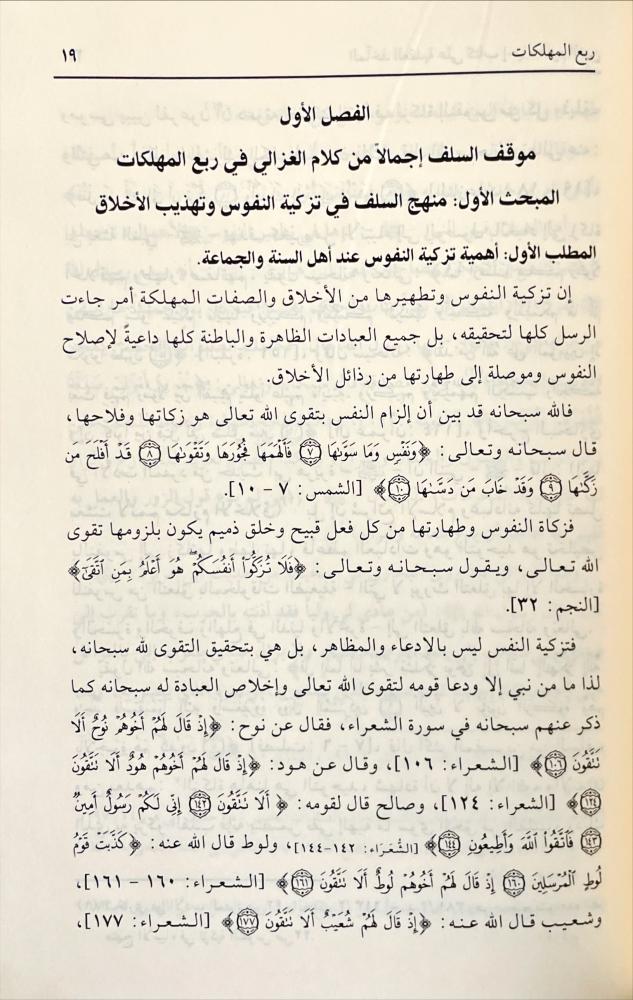 ربع المهلكات ١٩
الفصل الأول
موقف السلف إجمالاً من كلام الغزالي في ربع المهلكات
المبحث الأول: منهج السلف في تزكية النفوس وتهذيب الأخلاق
المطلب الأول: أهمية تزكية النفوس عند أهل السنة والجماعة.
إن تزكية النفوس وتطهيرها من الأخلاق والصفات المهلكة أمر جاءت
الرسل كلها لتحقيقه، بل جميع العبادات الظاهرة والباطنة كلها داعيةً لإصلاح
النفوس وموصلة إلى طهارتها من رذائل الأخلاق.
فالله سبحانه قد بين أن إلزام النفس بتقوى الله تعالى هو زكاتها وفلاحها،
قال سبحانه وتعالى: ﴿وَنَفْسٍ وَمَا سَوَّىٰهَا ۝٧ فَأَلْهَمَهَا فُجُورَهَا وَتَقْوَىٰهَا ۝٨ قَدْ أَفْلَحَ مَن
زَكَّىٰهَا ۝٩ وَقَدْ خَابَ مَن دَسَّىٰهَا ۝١٠﴾ [الشمس: ٧ - ١٠].
فزكاة النفوس وطهارتها من كل فعل قبيح وخلق ذميم يكون بلزومها تقوى
الله تعالى، ويقول سبحانه وتعالى: ﴿فَلَا تُزَكُّوٓا۟ أَنفُسَكُمْ ۖ هُوَ أَعْلَمُ بِمَنِ ٱتَّقَىٰٓ﴾
[النجم: ٣٢].
فتزكية النفس ليس بالادعاء والمظاهر، بل هي بتحقيق التقوى لله سبحانه،
لذا ما من نبي إلا ودعا قومه لتقوى الله تعالى وإخلاص العبادة له سبحانه كما
ذكر عنهم سبحانه في سورة الشعراء، فقال عن نوح: ﴿إِذْ قَالَ لَهُمْ أَخُوهُمْ نُوحٌ أَلَا
تَتَّقُونَ ۝١٠٦﴾ [الشعراء: ١٠٦]، وقال عن هود: ﴿إِذْ قَالَ لَهُمْ أَخُوهُمْ هُودٌ أَلَا تَتَّقُونَ
۝١٢٤﴾ [الشعراء: ١٢٤]، وصالح قال لقومه: ﴿ أَلَا تَتَّقُونَ ۝١٤٢ إِنِّى لَكُمْ رَسُولٌ أَمِينٌ
۝١٤٣ فَٱتَّقُوا۟ ٱللَّهَ وَأَطِيعُونِ ۝١٤٤﴾ [الشُّعَرَاء: ١٤٢-١٤٤]، ولوط قال الله عنه: ﴿كَذَّبَتْ قَوْمُ
لُوطٍ ٱلْمُرْسَلِينَ ۝١٦٠ إِذْ قَالَ لَهُمْ أَخُوهُمْ لُوطٌ أَلَا تَتَّقُونَ ۝١٦١﴾ [الشعراء: ١٦٠ - ١٦١]،
وشعيب قال الله عنه: ﴿إِذْ قَالَ لَهُمْ شُعَيْبٌ أَلَا تَتَّقُونَ ۝١٧٧﴾ [الشعراء: ١٧٧]،